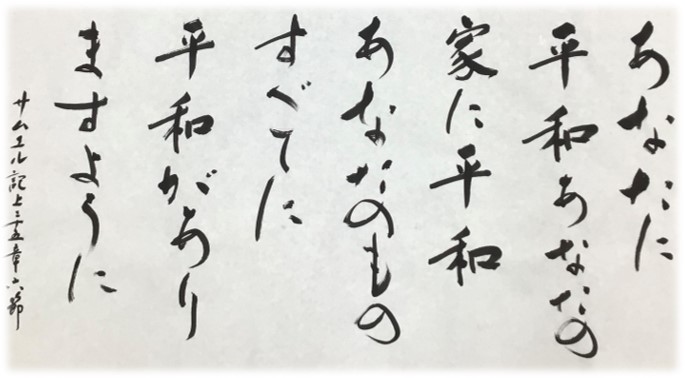 あなたに
平和あなたの
家に平和
あなたのもの
すべてに
平和があり
ますように
サムエル記上二十五章六節